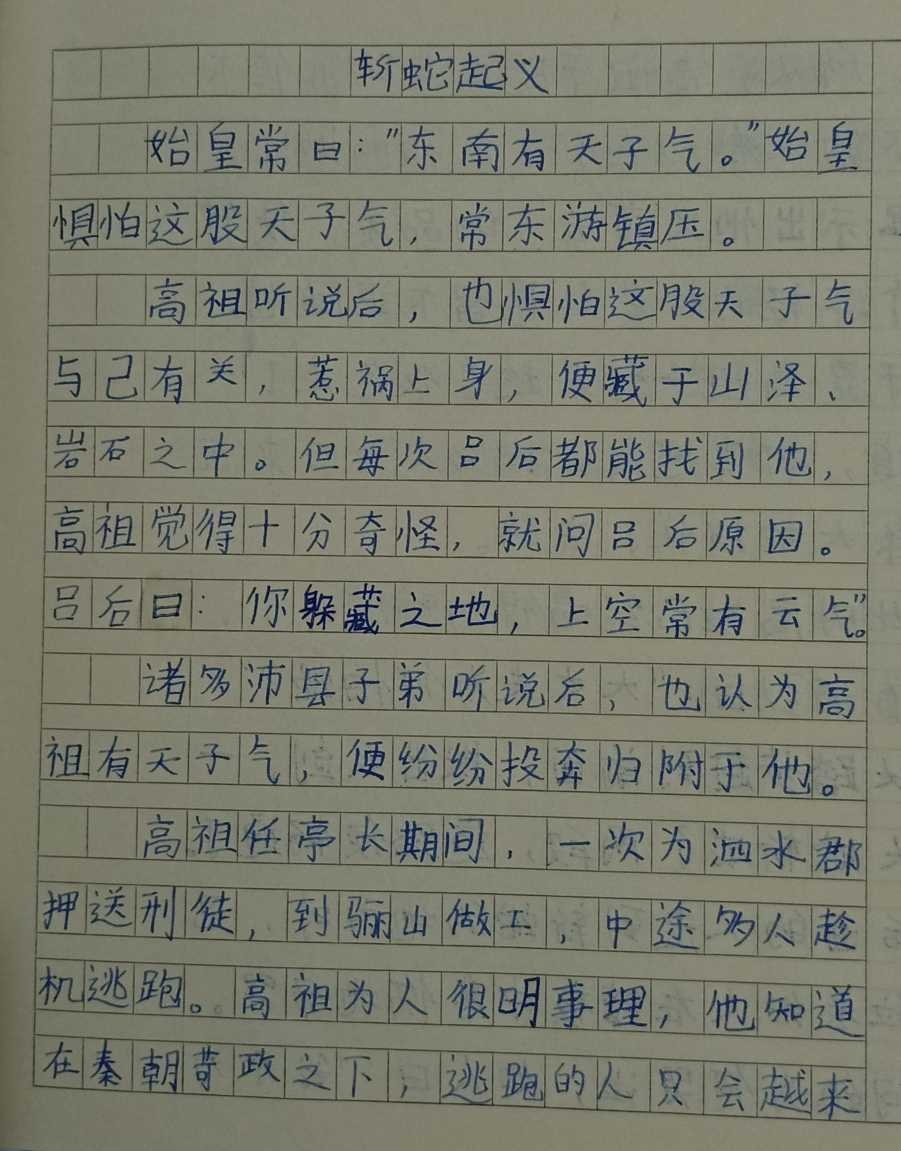 斩蛇起义
始皇常曰："东南有天子气。"始皇
惧怕这股天子气，常东游镇压。
高祖听说后，也惧怕这股天子气
与己有关，惹祸上身，便藏于山泽、
岩石之中。但每次吕后都能找到他，
高祖觉得十分奇怪，就问吕后原因。
吕后曰：你躲藏之地，上空常有云气。"
诸多沛县子弟听说后，也认为高
祖有天子气，便纷纷投奔归附于他。
高祖任亭长期间，一次为泗水郡
押送刑徒，到骊山做工，中途多人趁
机逃跑。高祖为人很明事理，他知道
在秦朝苛政之下，逃跑的人只会越来